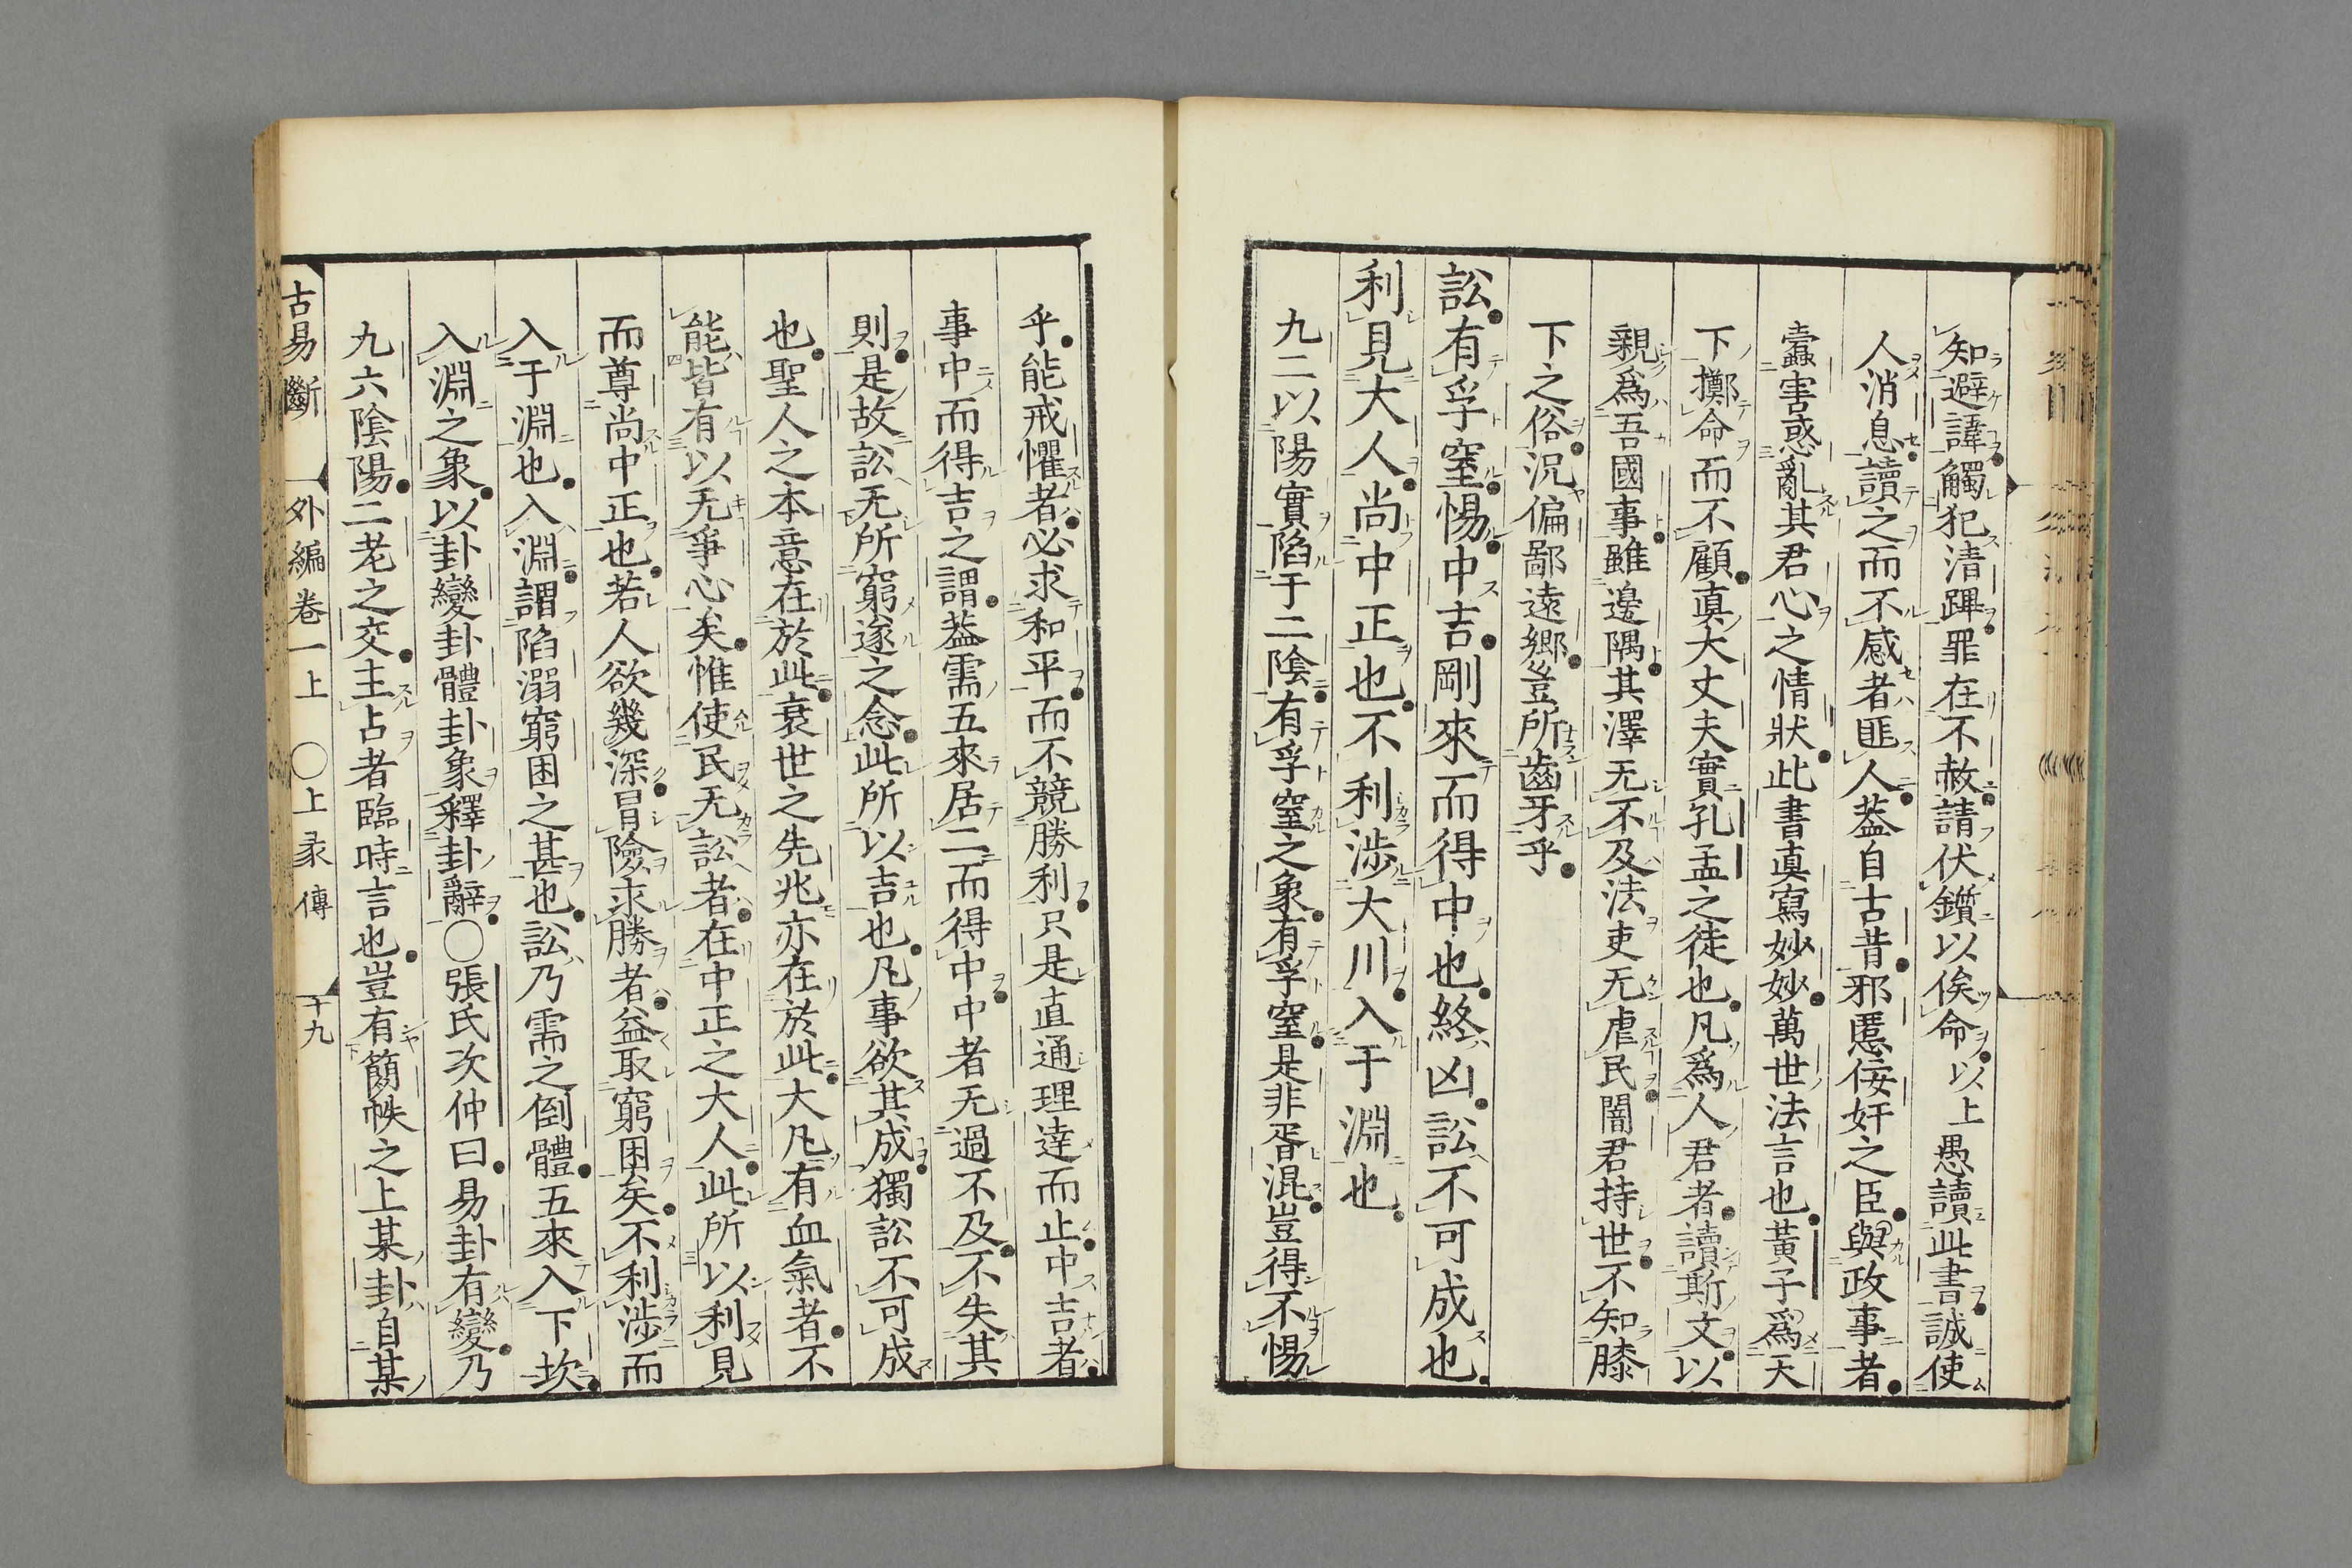 知避諱觸犯清蹕罪在不赦請伏鑕以俟命以上愚讀此書誠使
人消息讀之而不感者匪人葢自古昔邪慝佞奸之臣與政事者
蠹害惑亂其君心之情狀此書眞寫妙妙萬世法言也黃子爲天
下擲命而不顧眞大丈夫實孔孟之徒也凡爲人君者讀斯文以
親爲吾國事雖邊隅其澤无不及法吏无虐民闇君持世不知膝
下之俗況偏鄙遠鄉豈所齒牙乎
訟有孚窒惕中吉剛來而得中也終凶訟不可成也
利見大人尚中正也不利涉大川入于淵也
九二以陽實陷于二陰有孚窒之象有孚窒是非胥混豈得不惕
乎能戒懼者必求和平而不競勝利只是直通理達而止中吉者
事中而得吉之謂葢需五來居二而得中中者无過不及不失其
則是故訟无所窮遂之念此所以吉也凡事欲其成獨訟不可成
也聖人之本意在於此衰世之先兆亦在於此大凡有血氣者不
能皆有以无爭心矣惟使民无訟者在中正之大人此所以利見
而尊尚中正也若人欲幾深冒險求勝者益取窮困矣不利涉而
入于淵也入淵謂陷溺窮困之甚也訟乃需之倒體五來入下坎
入淵之象以卦變卦體卦象釋卦辭○張氏次仲曰易卦有變乃
九六陰陽二老之交主占者臨時言也豈有簡帙之上某卦自某
古易斷　外編卷一上　○上彖傳　十九